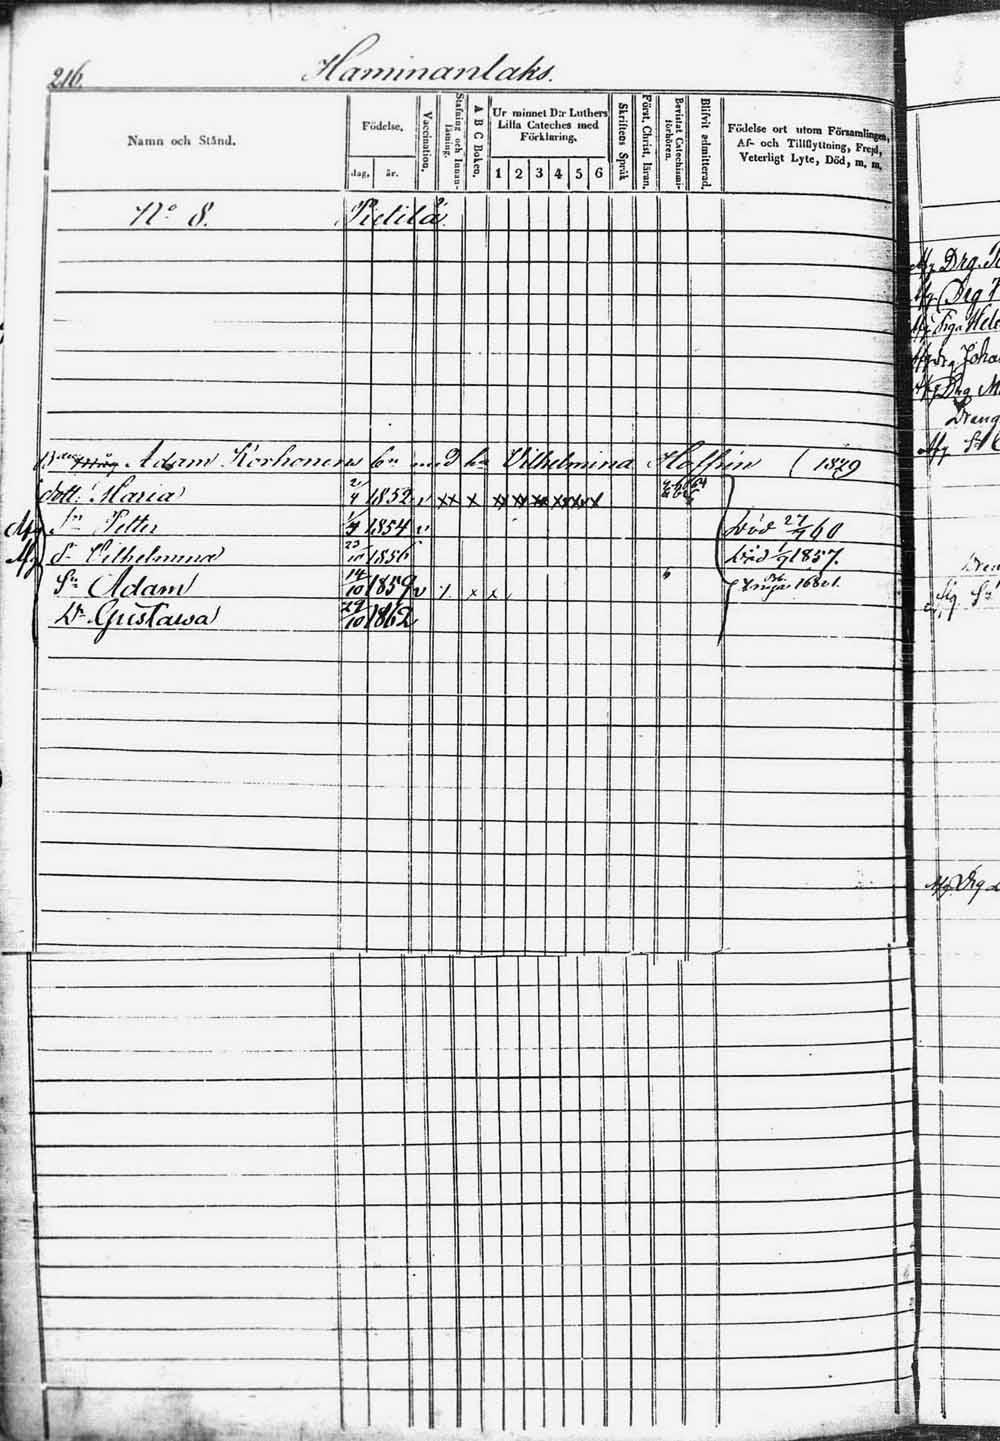 216.
Haminanlaks.
Namn och Stånd.
Födelse,
dag, år.
Vaccination.
Stafning och Innanläsning.
A B C Boken.
Ur minnet D:r Luthers
Lilla Cateches med
Förklaring.
1 2 3 4 5 6
Skriftens Språk
Först. Christ. läran.
Bevistat Catechismiförhören.
Blifvit admitterad.
Födelse ort utom Församlingen,
Af- och Tillflyttning, Frejd,
Veterligt Lyte, Död, m. m.
No 8. Pielilä.
Adam Korhonens bn med hu Vilhelmina Hoffrén (1829
dott. Maria 2/4 1852 v xx x
Afg Sn Petter 1854 v Död 27/7 60
Afg d. Vilhelmina 23/10 1856 Död 1/9 1857.
Sn Adam 14/10 1859 v x x
Dr Gustawa 29/10 1862
Afg Drg
Afg Drg
Afg
Afg Drg Joha
Afg Drg M
Dreng
Afg Sn
Dreng
Sn
Afg Drg